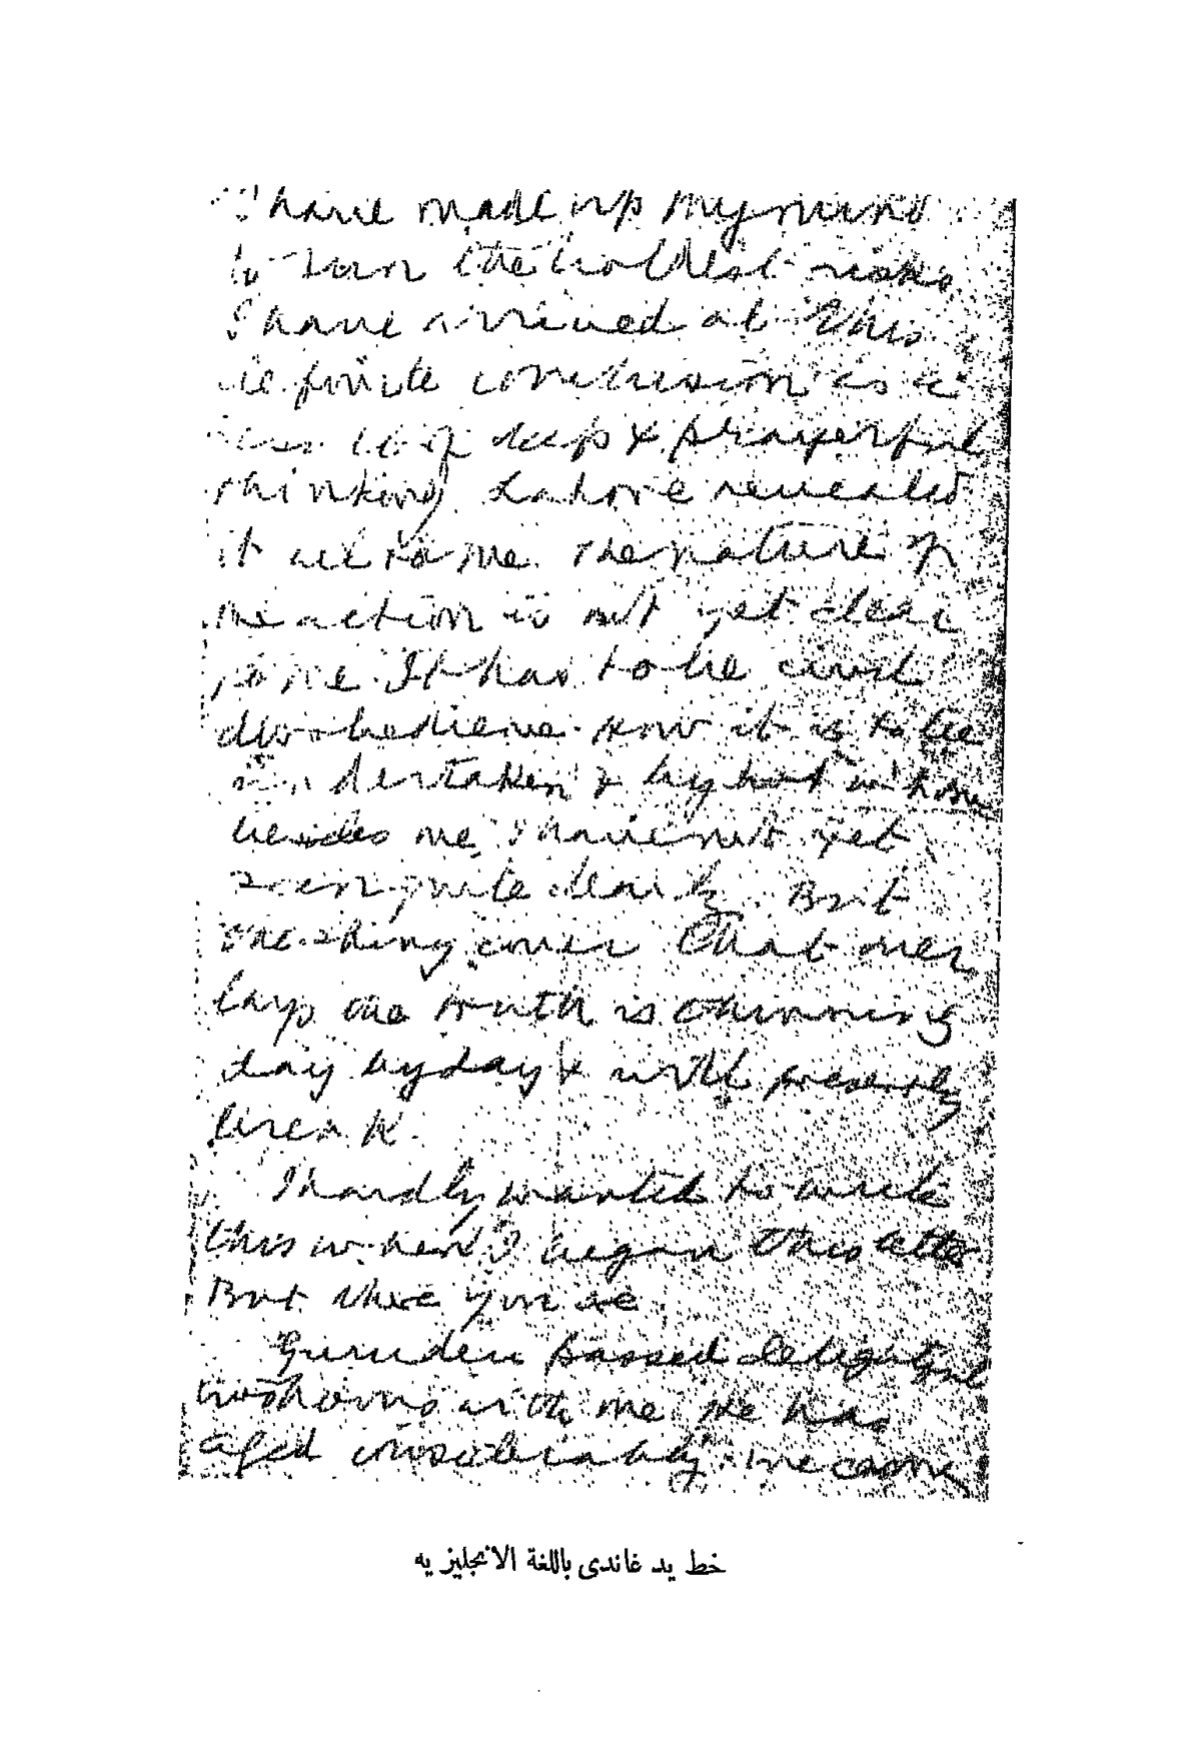 I have made up my mind
to run the boldest risks
I have arrived at this
definite conclusion as a
result of deep & prayerful
thinking. Lahore revealed
it all to me. The nature of
the action is not yet clear
to me. It has to be civil
disobedience. How it is to be
undertaken & by
besides me, I have not yet
seen quite clearly. But
the shining cover that over
lays the truth is thinning
day by day & will presently
break.
I hardly wanted to write
this when I began this letter
But there you are.
Gurudev passed delightful
two hours with me. He has
aged considerably. We came
خط يد غاندى باللغة الانجليزيه